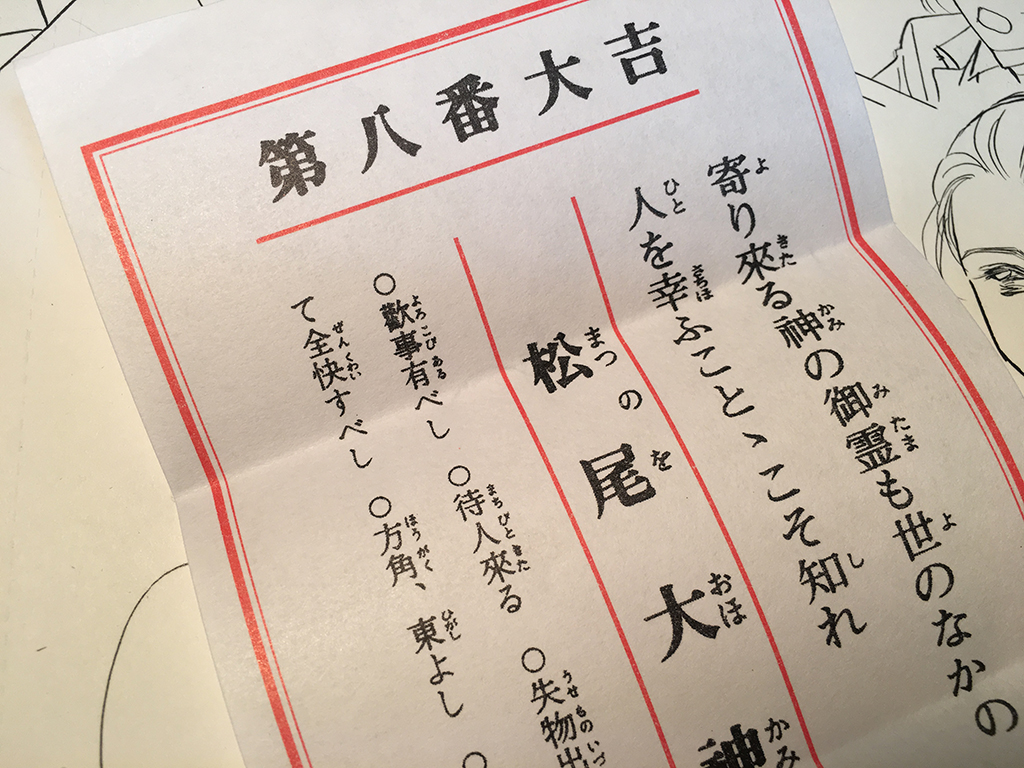 第八番大吉
寄り來る神の御霊も世のなかの
人を幸ふことゝこそ知れ
松の尾大神
○歡事有べし ○待人來る ○失物出
て全快すべし ○方角、東よし ○